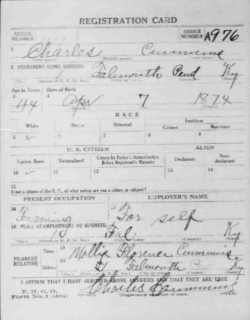 REGISTRATION CARD
SERIAL NUMBER
ORDER NUMBER A976
Charles Cummins
2 PERMANENT HOME ADDRESS:
Falmouth Pend Ky
Age in Years
Date of Birth
44 Apr 7 1874
RACE
White
Oriental
Indian
U. S. CITIZEN
ALIEN
Native Born
Naturalized
Citizen by Father's Naturalization Before Registrant's Majority
Declarant
Non-declarant
If not a citizen of the U. S., of what nation are you a citizen or subject?
PRESENT OCCUPATION
EMPLOYER'S NAME
Farming
For self
PLACE OF EMPLOYMENT OR BUSINESS:
Fal Ky
NEAREST RELATIVE
Mollie Florence Cummins
Falmouth Ky
I AFFIRM THAT I HAVE VERIFIED ABOVE ANSWERS AND THAT THEY ARE TRUE
P. M. G. O.
Form No. 1
Charles Cummins